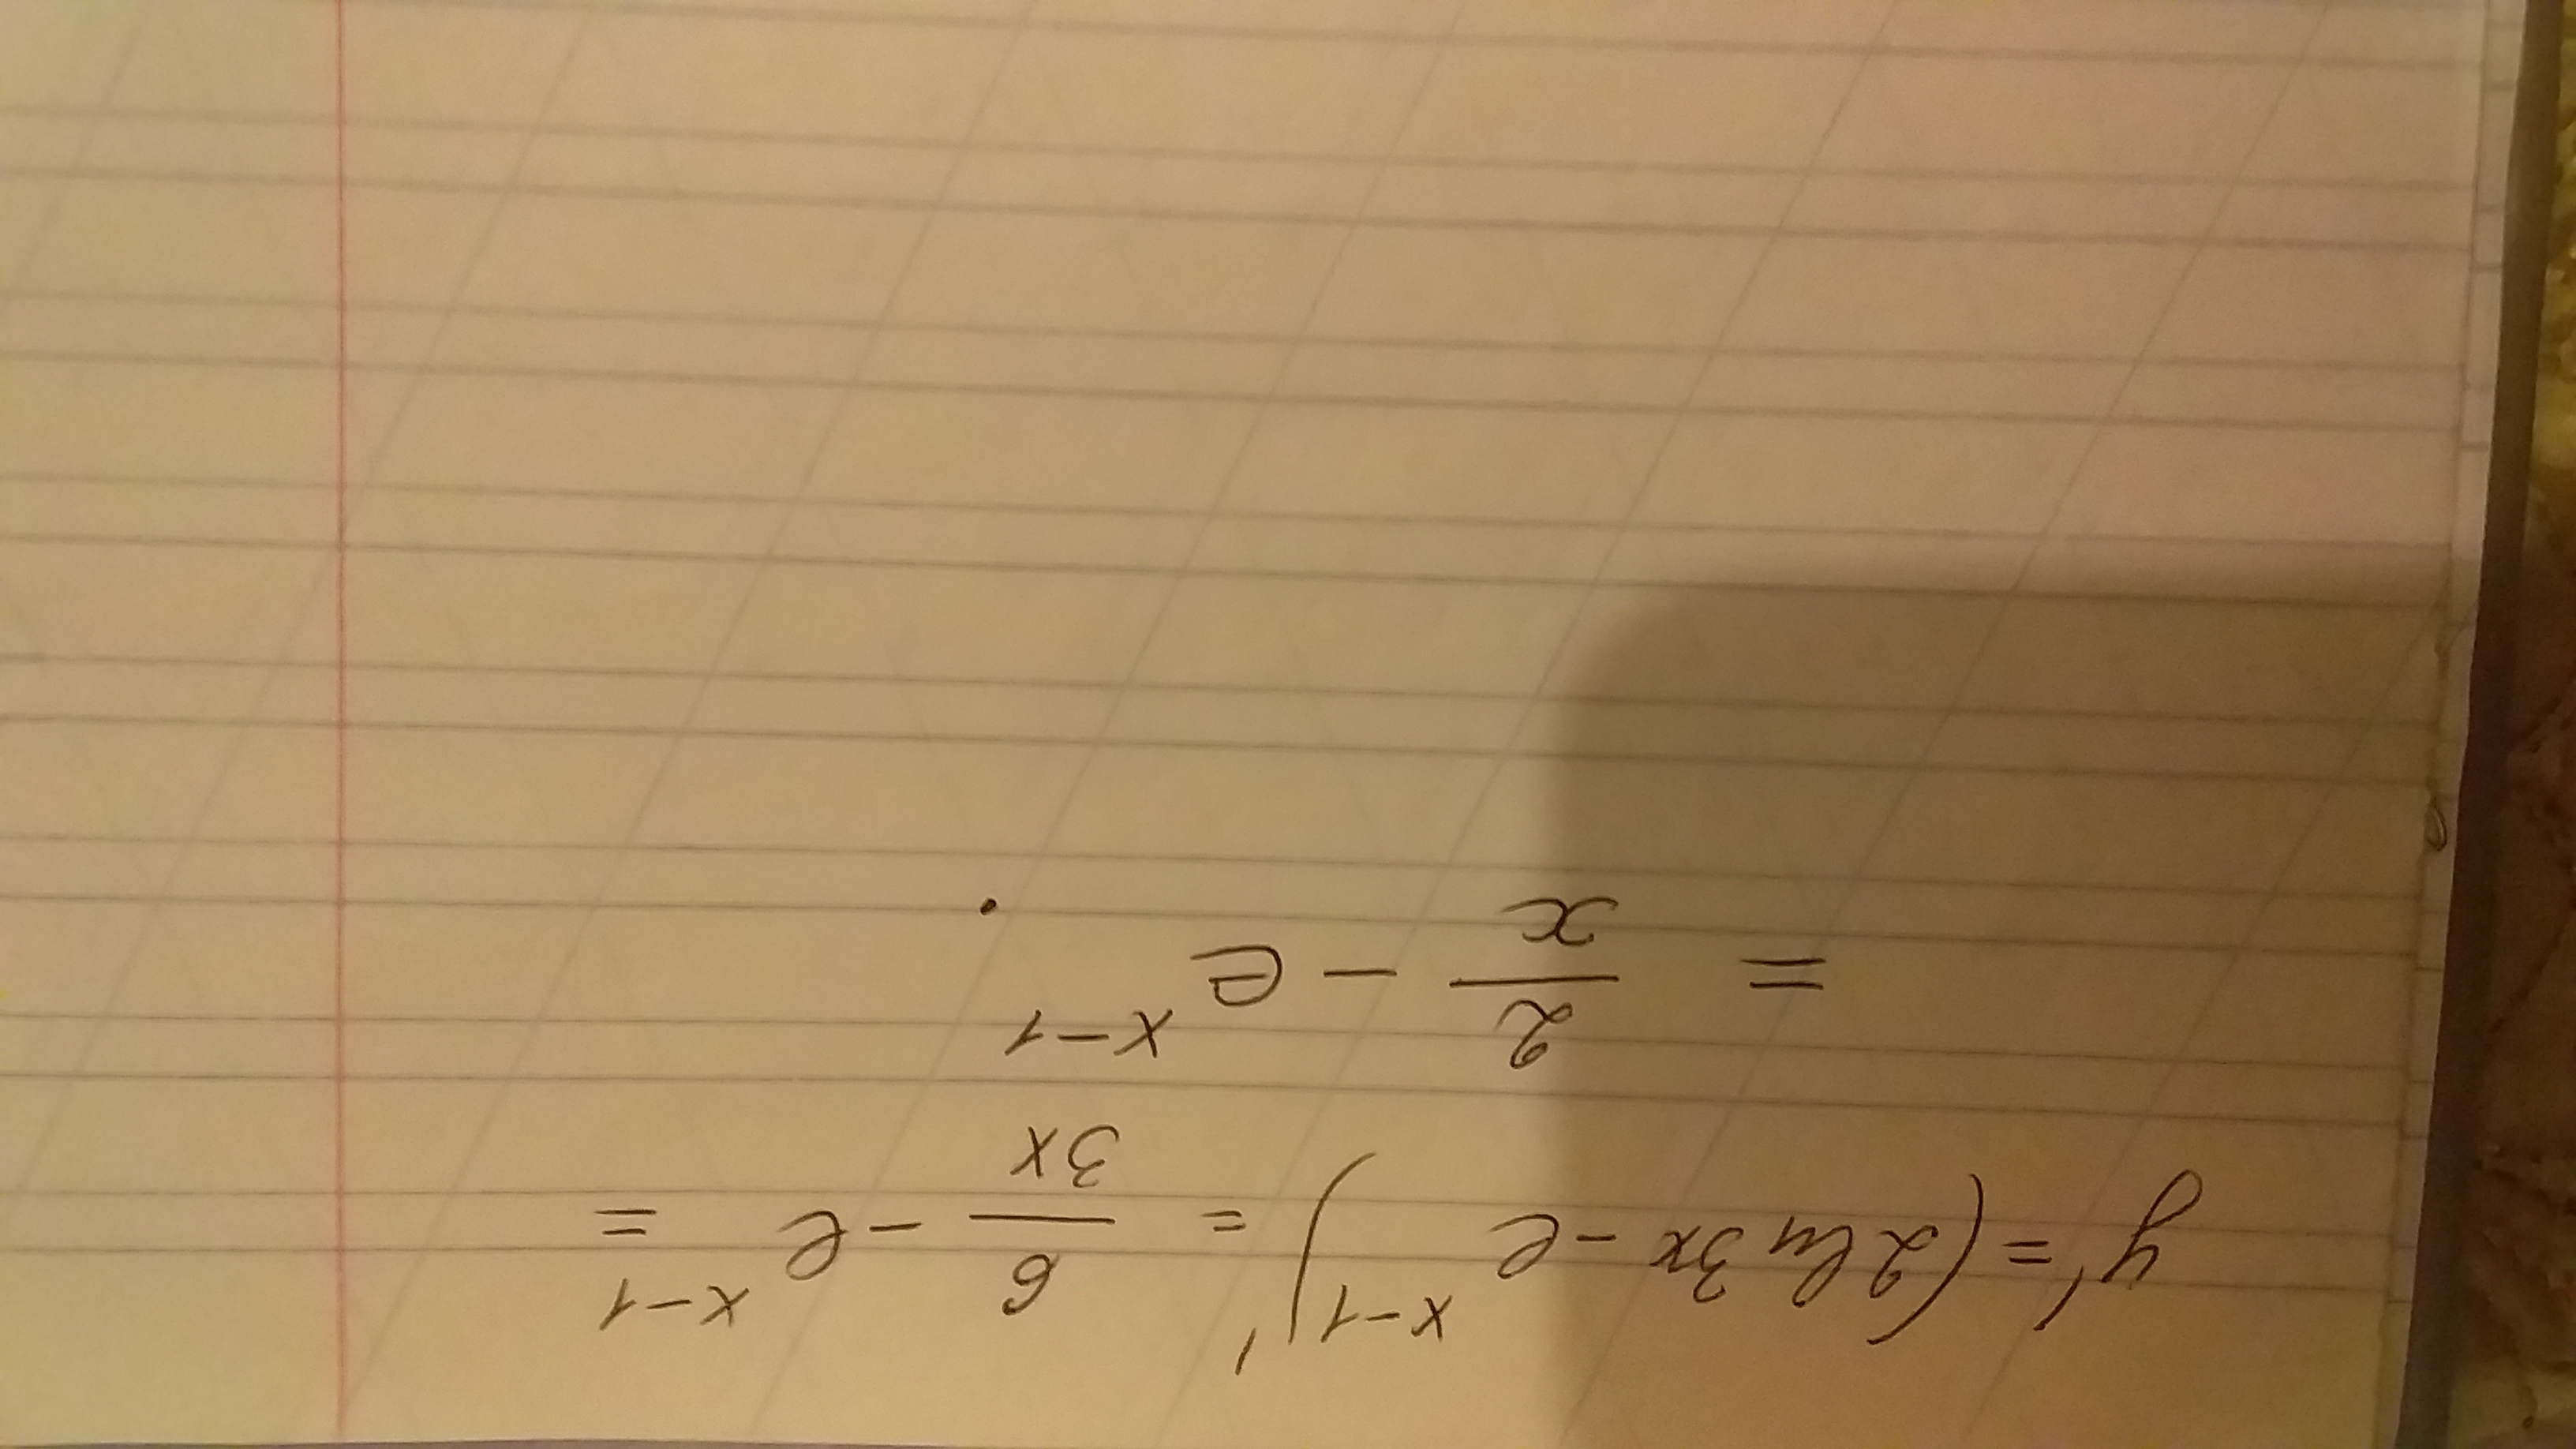 y' = (2 ln 3x - e^{x-1})' = \frac{6}{3x} - e^{x-1} =
= \frac{2}{x} - e^{x-1}.